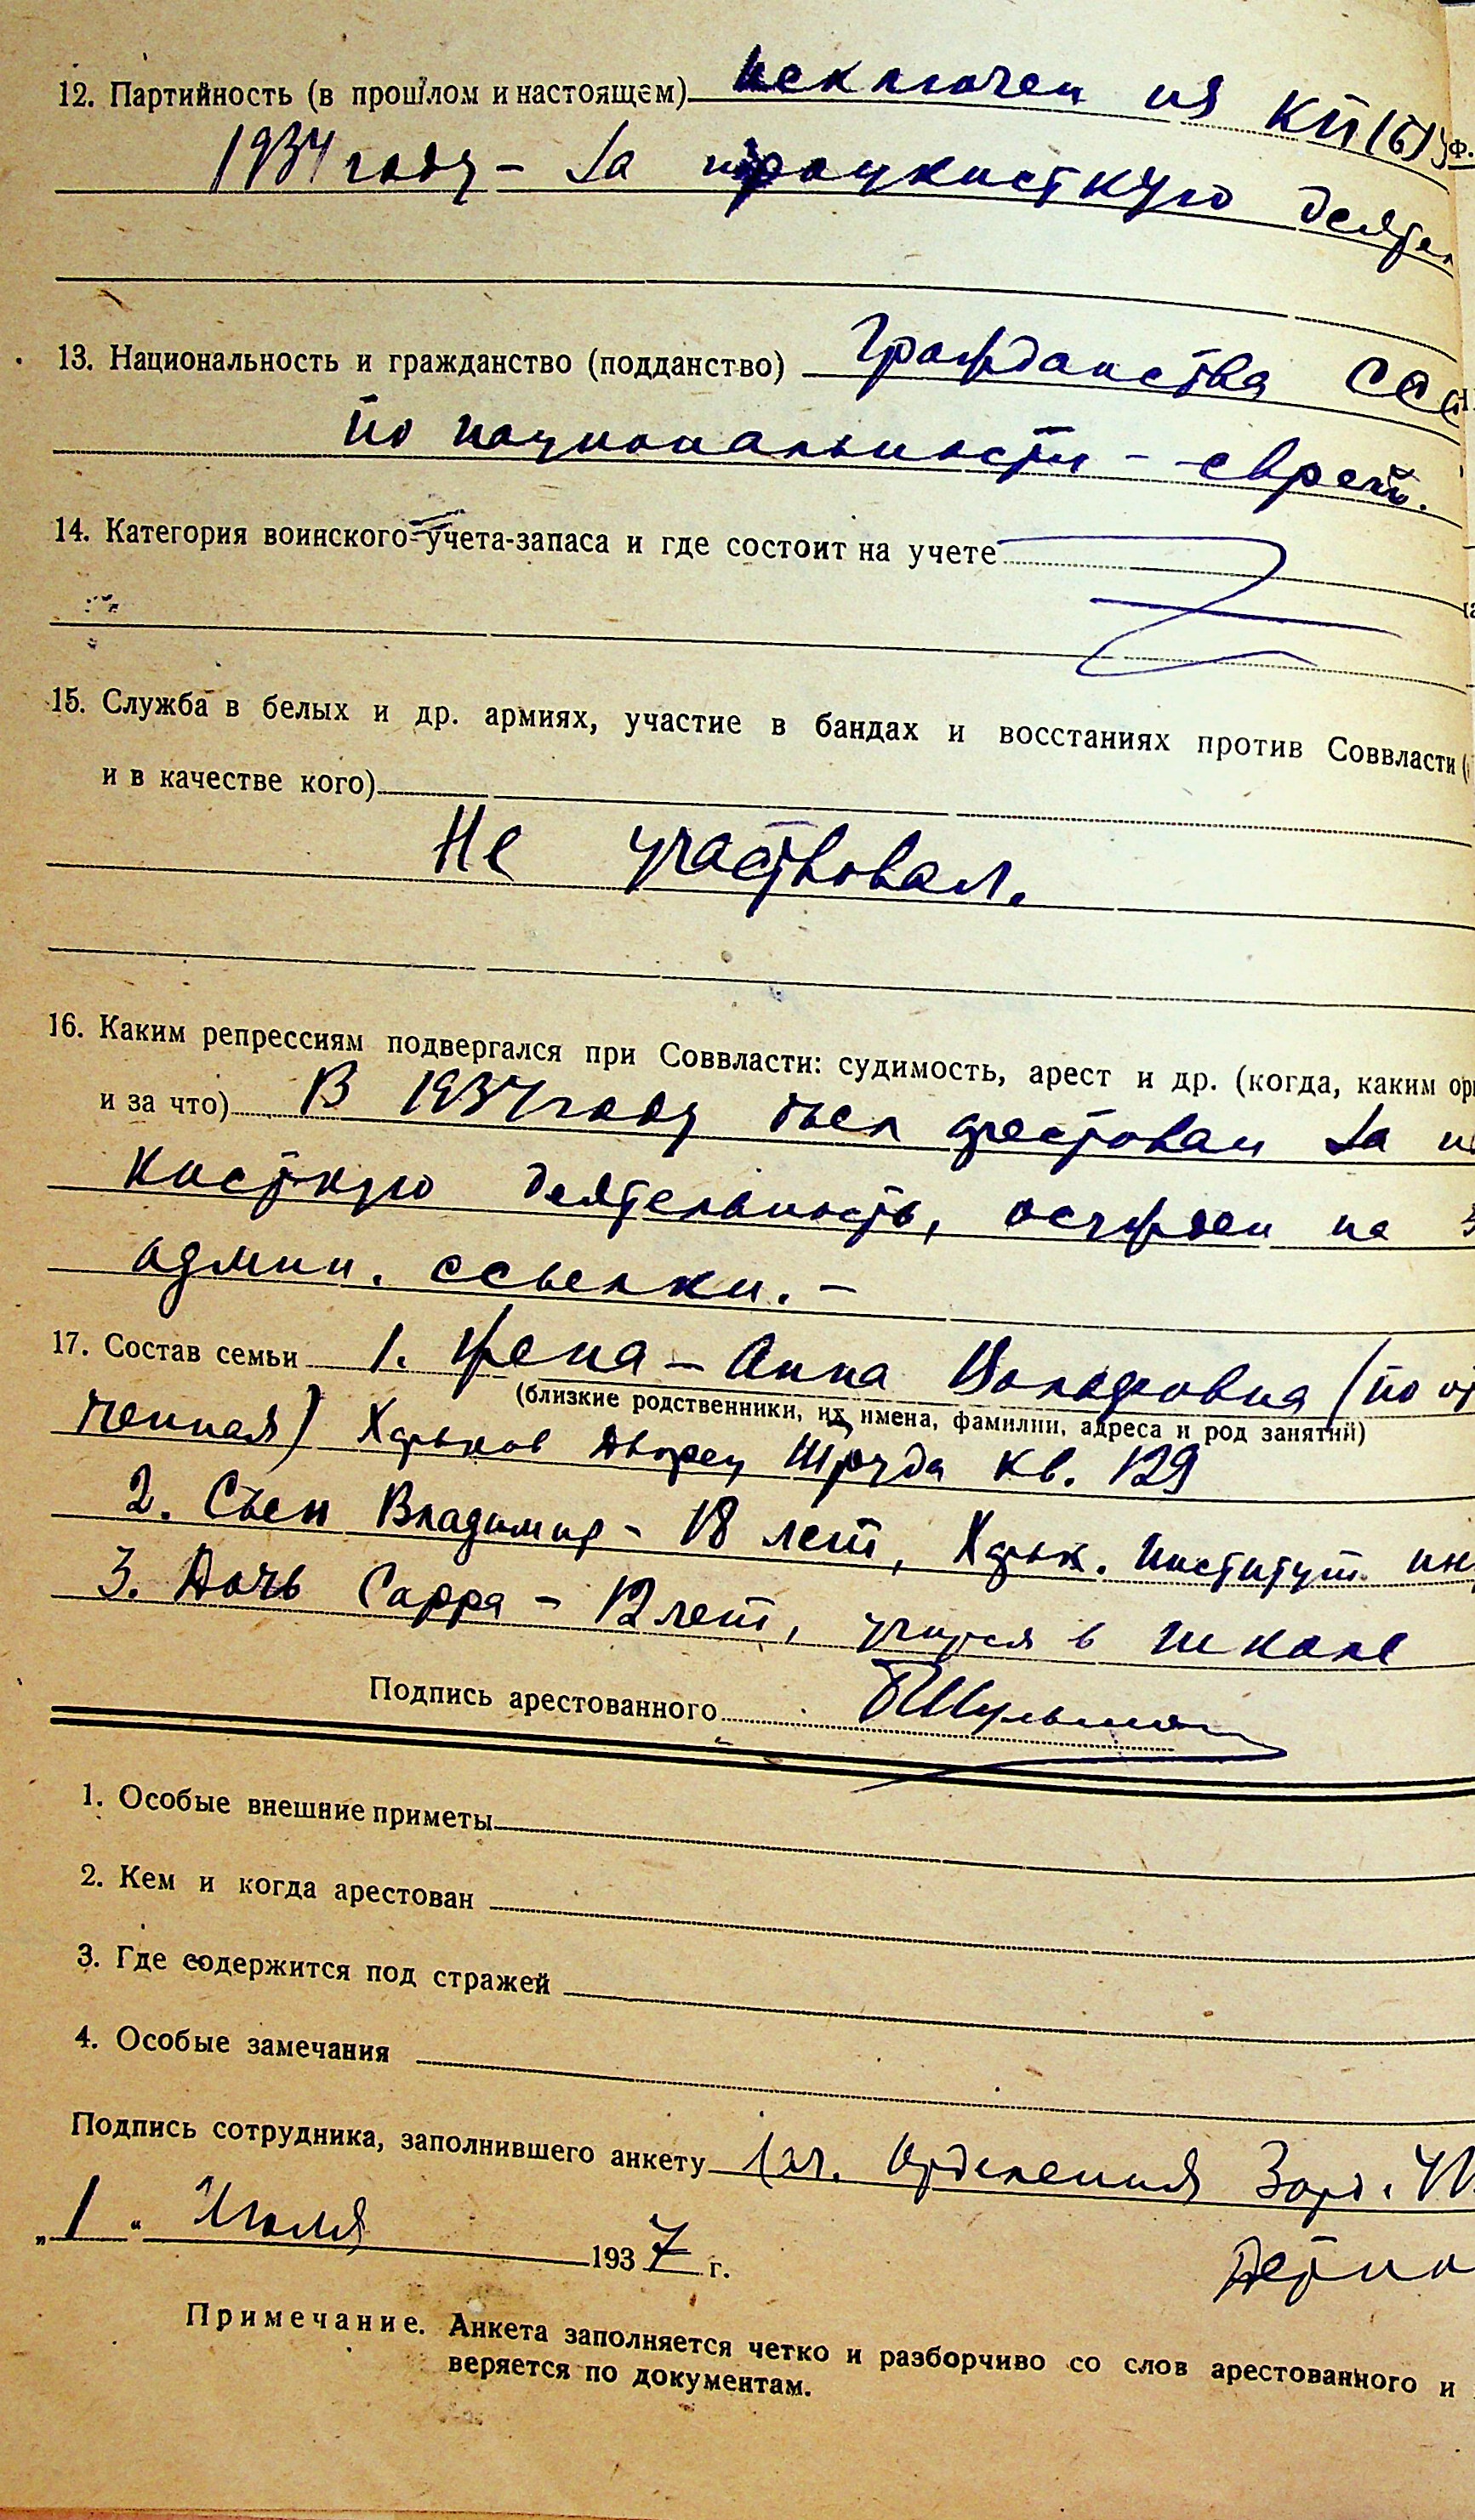 12. Партийность (в прошлом и настоящем) исключен из КП(б)У
1934 году - за троцкисткую деятел
13. Национальность и гражданство (подданство) Гражданства ССС
по национальности - еврей.
14. Категория воинского учета-запаса и где состоит на учете
15. Служба в белых и др. армиях, участие в бандах и восстаниях против Соввласти (
и в качестве кого)
Не участвовал.
16. Каким репрессиям подвергался при Соввласти: судимость, арест и др. (когда, каким орг
и за что) В 1934 году был арестован за
кисткую деятельность, осужден на 3
админ. ссылки. -
17. Состав семьи 1. Жена - Анна (по от
(близкие родственники, их имена, фамилии, адреса и род занятий)
ченная) Харьков Дворец Труда кв. 129
2. Сын Владимир - 18 лет, Харьк. Институт ин
3. Дочь Сарра - 12 лет, учится в школе
Подпись арестованного БШульман
1. Особые внешние приметы
2. Кем и когда арестован
3. Где содержится под стражей
4. Особые замечания
Подпись сотрудника, заполнившего анкету Нач. Отделения
„1“ Июля 1937 г.
Примечание. Анкета заполняется четко и разборчиво со слов арестованного и
веряется по документам.